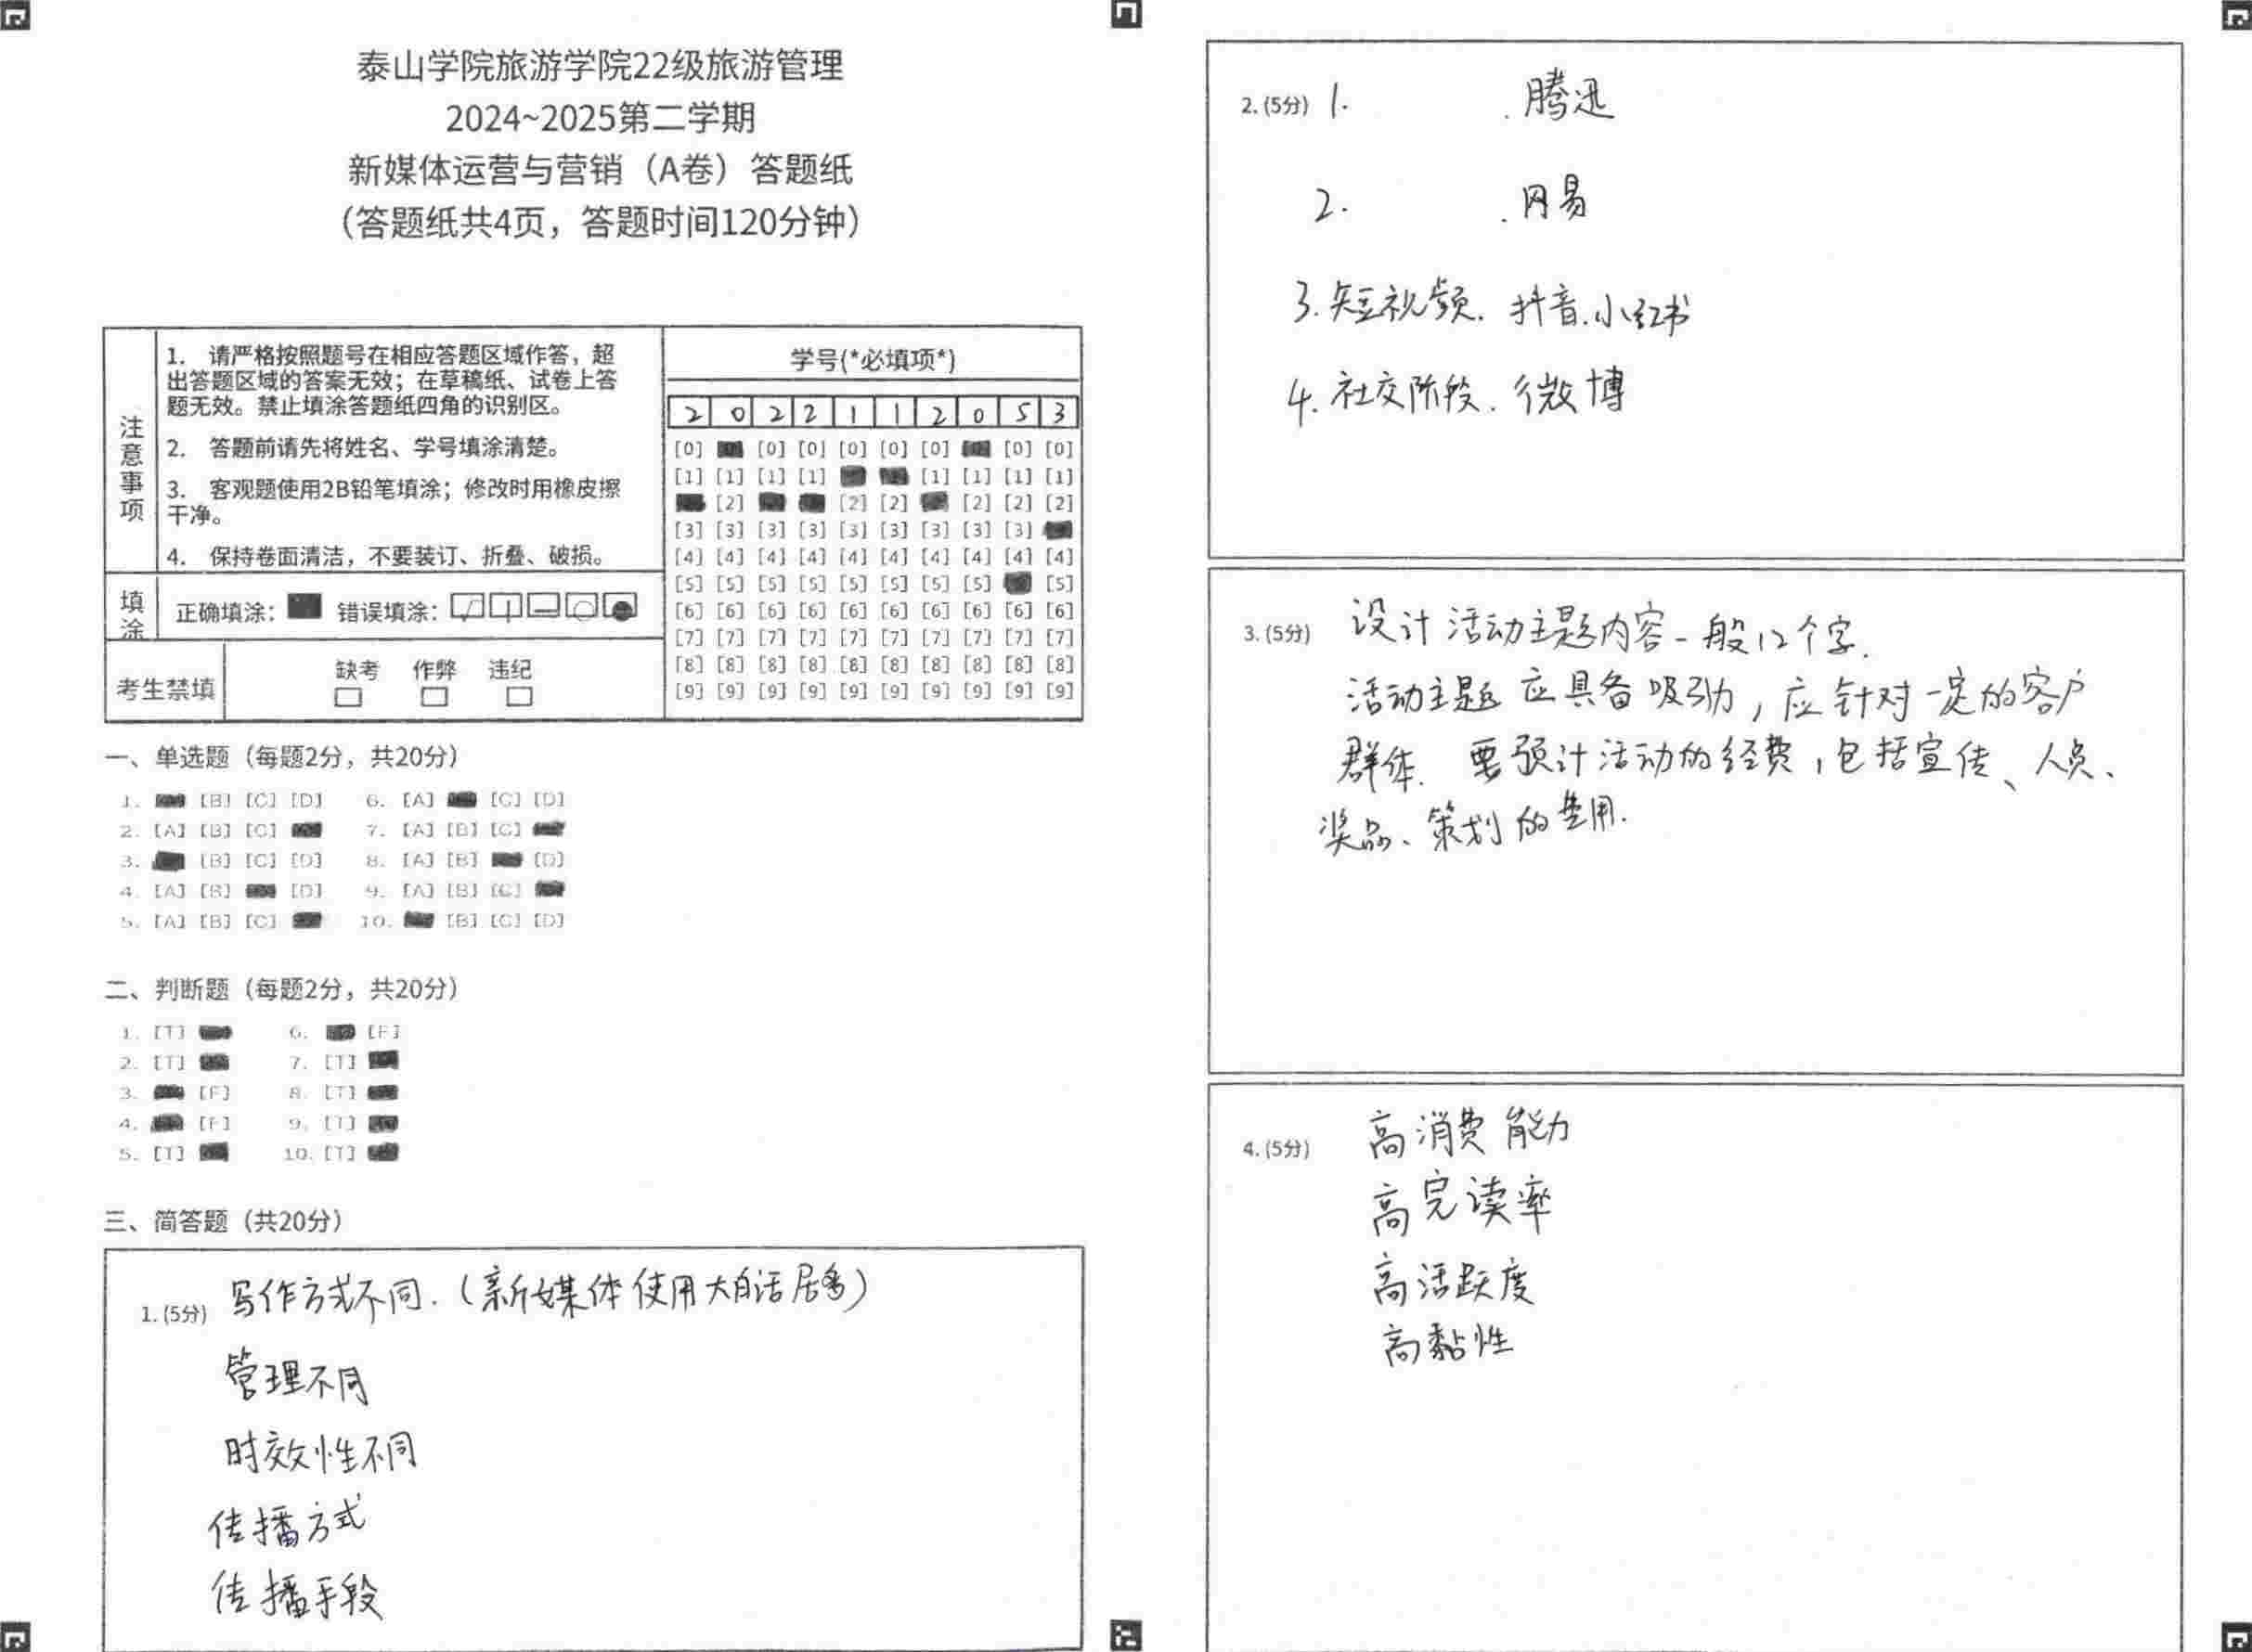 泰山学院旅游学院22级旅游管理
2024~2025第二学期
新媒体运营与营销（A卷）答题纸
（答题纸共4页，答题时间120分钟）
注意事项
1. 请严格按照题号在相应答题区域作答，超
出答题区域的答案无效；在草稿纸、试卷上答
题无效。禁止填涂答题纸四角的识别区。
2. 答题前请先将姓名、学号填涂清楚。
3. 客观题使用2B铅笔填涂；修改时用橡皮擦
干净。
4. 保持卷面清洁，不要装订、折叠、破损。
填涂
正确填涂： 错误填涂：
考生禁填
缺考 作弊 违纪
学号(*必填项*)
2 0 2 2 1 1 2 0 5 3
[0] [0] [0] [0] [0] [0] [0] [0]
[1] [1] [1] [1] [1] [1] [1] [1]
[2] [2] [2] [2] [2] [2]
[3] [3] [3] [3] [3] [3] [3] [3] [3]
[4] [4] [4] [4] [4] [4] [4] [4] [4] [4]
[5] [5] [5] [5] [5] [5] [5] [5] [5]
[6] [6] [6] [6] [6] [6] [6] [6] [6] [6]
[7] [7] [7] [7] [7] [7] [7] [7] [7] [7]
[8] [8] [8] [8] [8] [8] [8] [8] [8] [8]
[9] [9] [9] [9] [9] [9] [9] [9] [9] [9]
一、单选题（每题2分，共20分）
1. [B] [C] [D] 6. [A] [C] [D]
2. [A] [B] [C] 7. [A] [B] [C]
3. [B] [C] [D] 8. [A] [B] [D]
4. [A] [B] [D] 9. [A] [B] [C]
5. [A] [B] [C] 10. [B] [C] [D]
二、判断题（每题2分，共20分）
1. [T] 6. [F]
2. [T] 7. [T]
3. [F] 8. [T]
4. [F] 9. [T]
5. [T] 10. [T]
三、简答题（共20分）
1. (5分) 写作方式不同.（新媒体使用大白话居多）
管理不同
时效性不同
传播方式
传播手段
2. (5分) 1. . 腾迅
2. . 网易
3. 短视频. 抖音.小红书
4. 社交阶段. 微博
3. (5分) 设计活动主题内容一般12个字.
活动主题应具备吸引力，应针对一定的客户
群体. 要预计活动的经费，包括宣传、人员、
奖品、策划的费用.
4. (5分) 高消费能力
高完读率
高活跃度
高黏性